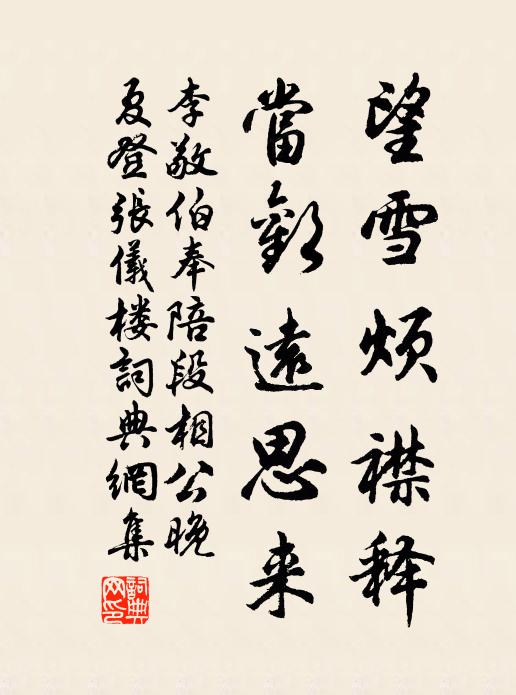 望雪烦襟释
當歡遠思来
李敬伯奉陪段相公晚
夏登張儀楼詞典網集
詞典网印